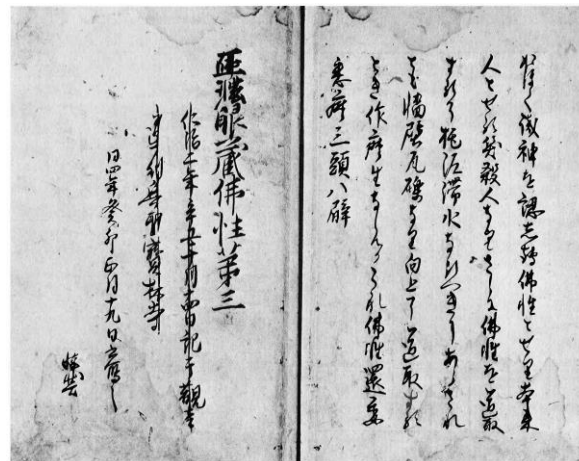 おほく識神を認して佛性とせり本來
人とせる笑殺人なりさらに佛性を道取
するに拕泥滞水なるへきにあらされ
とも牆壁瓦礫なり向上に道取する
とき作麼生ならんかこれ佛性還委
悉麼三頭八臂
正法眼藏佛性第三
仁治二年辛丑十月十四日記于觀音
導利興聖寶林寺
同四年癸卯正月十九日書寫之
懷弉